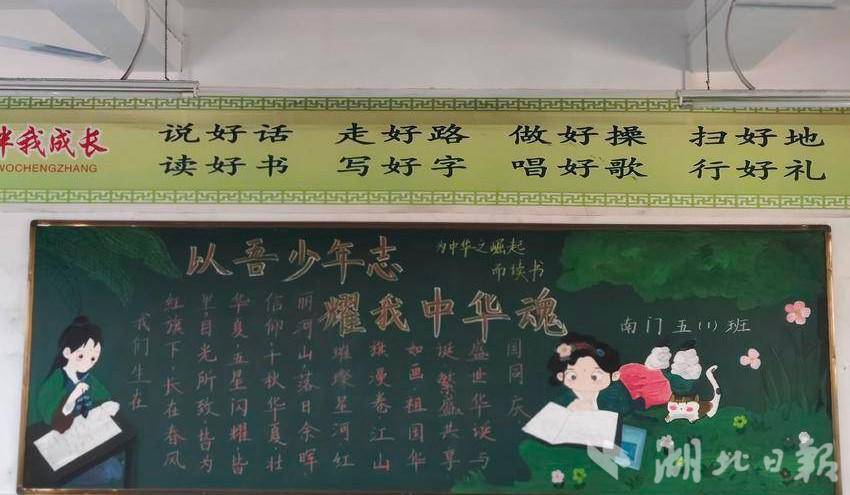 伴我成长
WOCHENGZHANG
说好话 走好路 做好操 扫好地
读好书 写好字 唱好歌 行好礼
以吾少年志
为中华之崛起
而读书
耀我中华魂
南门五(1)班
我们生在
红旗下·长在春风
里·目光所致·皆为
华夏·五星闪耀·皆
信仰·千秋华夏·壮
丽河山·落日余晖
璀璨星河·红
旗漫卷江山
如画祖国华
诞·繁盛共享
盛世华诞与
国同庆
湖北日报